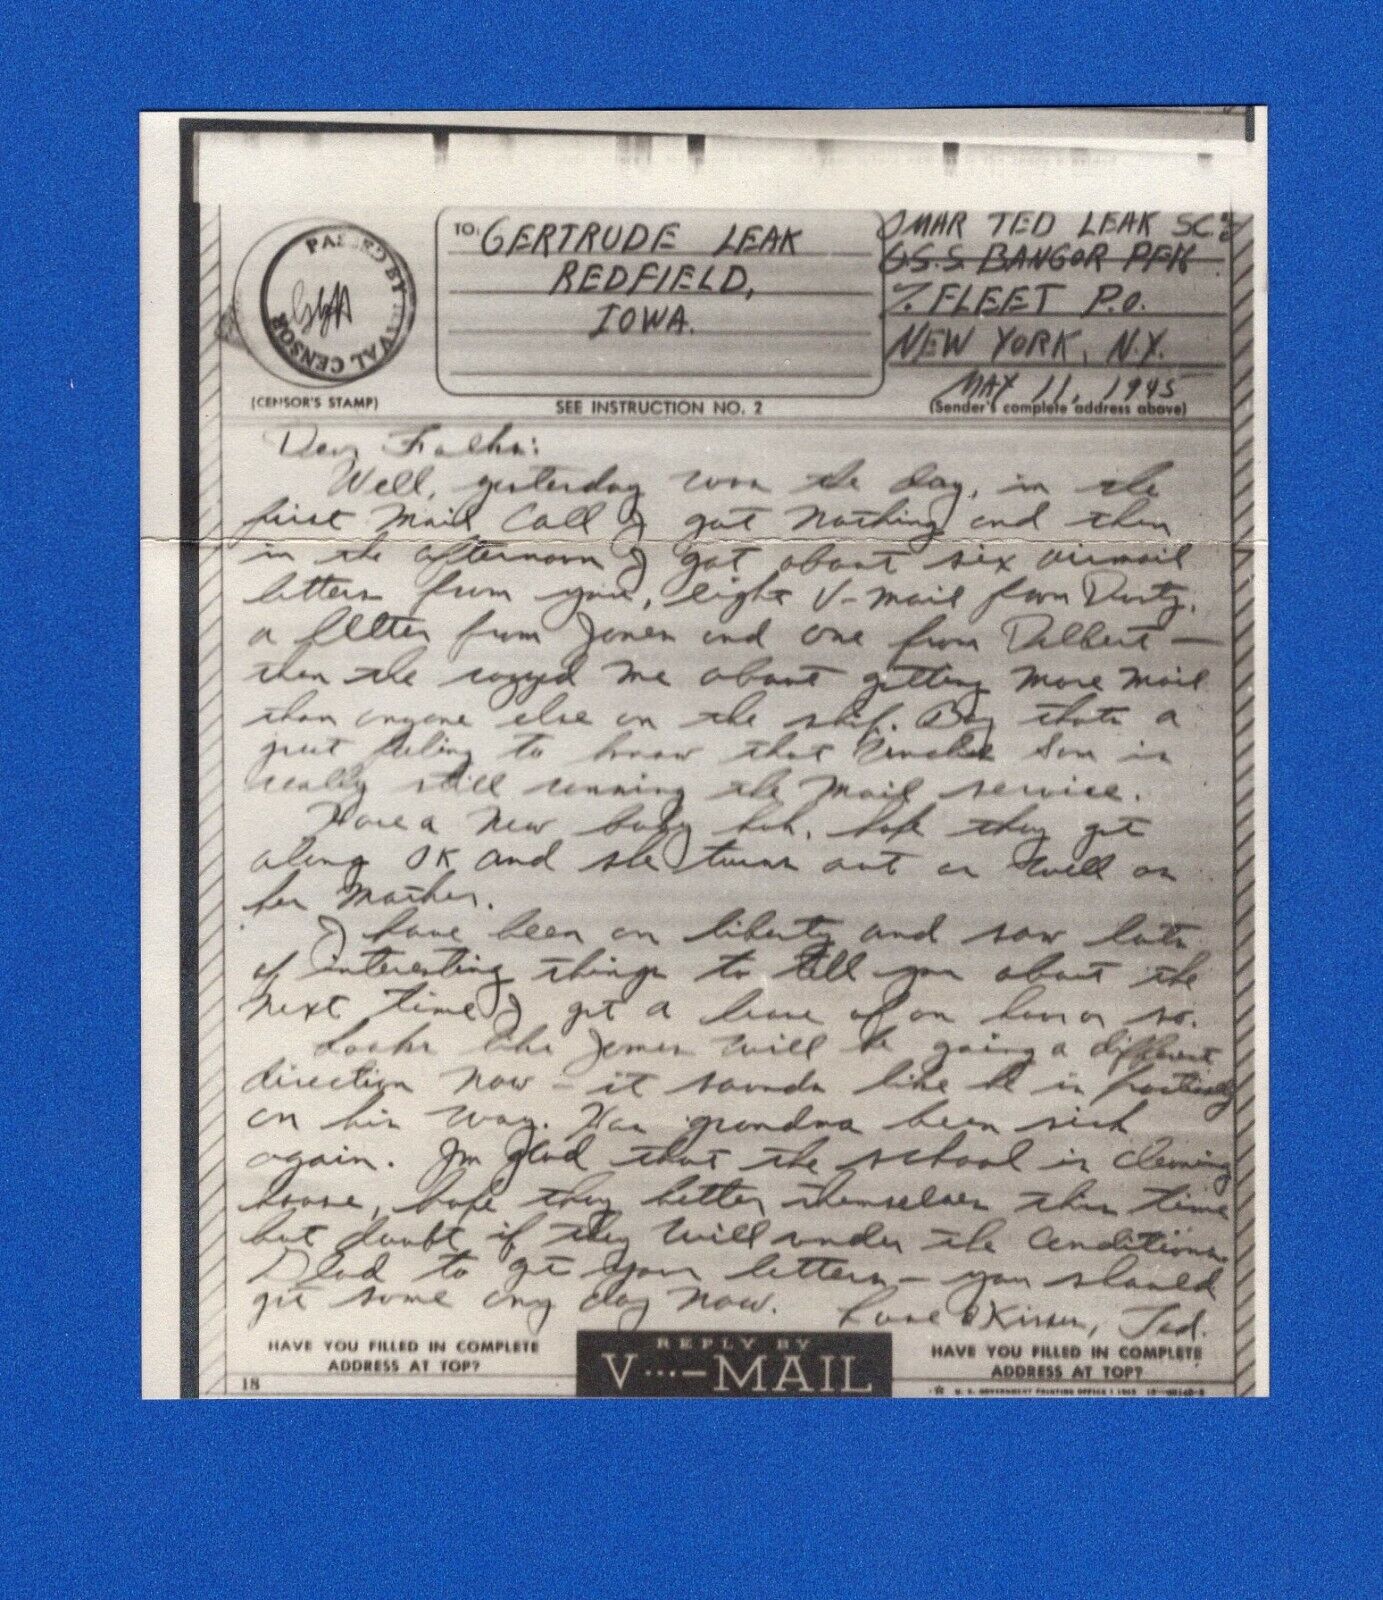 PASSED BY NAVAL CENSOR
(CENSOR'S STAMP)
TO: GERTRUDE LEAK
REDFIELD,
IOWA.
SEE INSTRUCTION NO. 2
OMAR TED LEAK SC
U.S.S. BANGOR PF16
% FLEET P.O.
NEW YORK, N.Y.
MAY 11, 1945
(Sender's complete address above)
Dear Folks:
Well, yesterday was the day, in the
first Mail Call I got nothing and then
in the afternoon I got about six airmail
letters from you, eight V-mail from Dusty,
a letter from James and one from Delbert —
then the razzed me about getting more mail
than anyone else on the ship. Boy thats a
great feeling to know that Son is
really still running the mail service.
Have a new baby huh, hope they get
along OK and she turns out as well as
her Mother.
I have been on liberty and saw lots
of interesting things to tell you about the
next time I get a leave of an hour or so.
Looks like James will be going a different
direction now — it sounds like he is practically
on his way. Has grandma been sick
again. Im glad that the school is cleaning
house, hope they better themselves this time
but doubt if they will under the conditions.
Glad to get your letters — you should
get some any day now. Love & Kisses, Ted.
HAVE YOU FILLED IN COMPLETE
ADDRESS AT TOP?
REPLY BY
V···—MAIL
HAVE YOU FILLED IN COMPLETE
ADDRESS AT TOP?
18
☆ U. S. GOVERNMENT PRINTING OFFICE